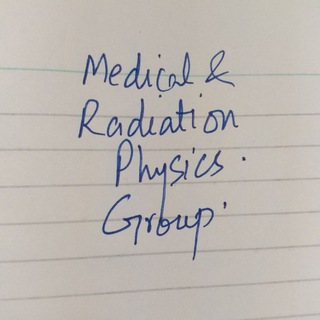 Medical &
Radiation
Physics.
Group.